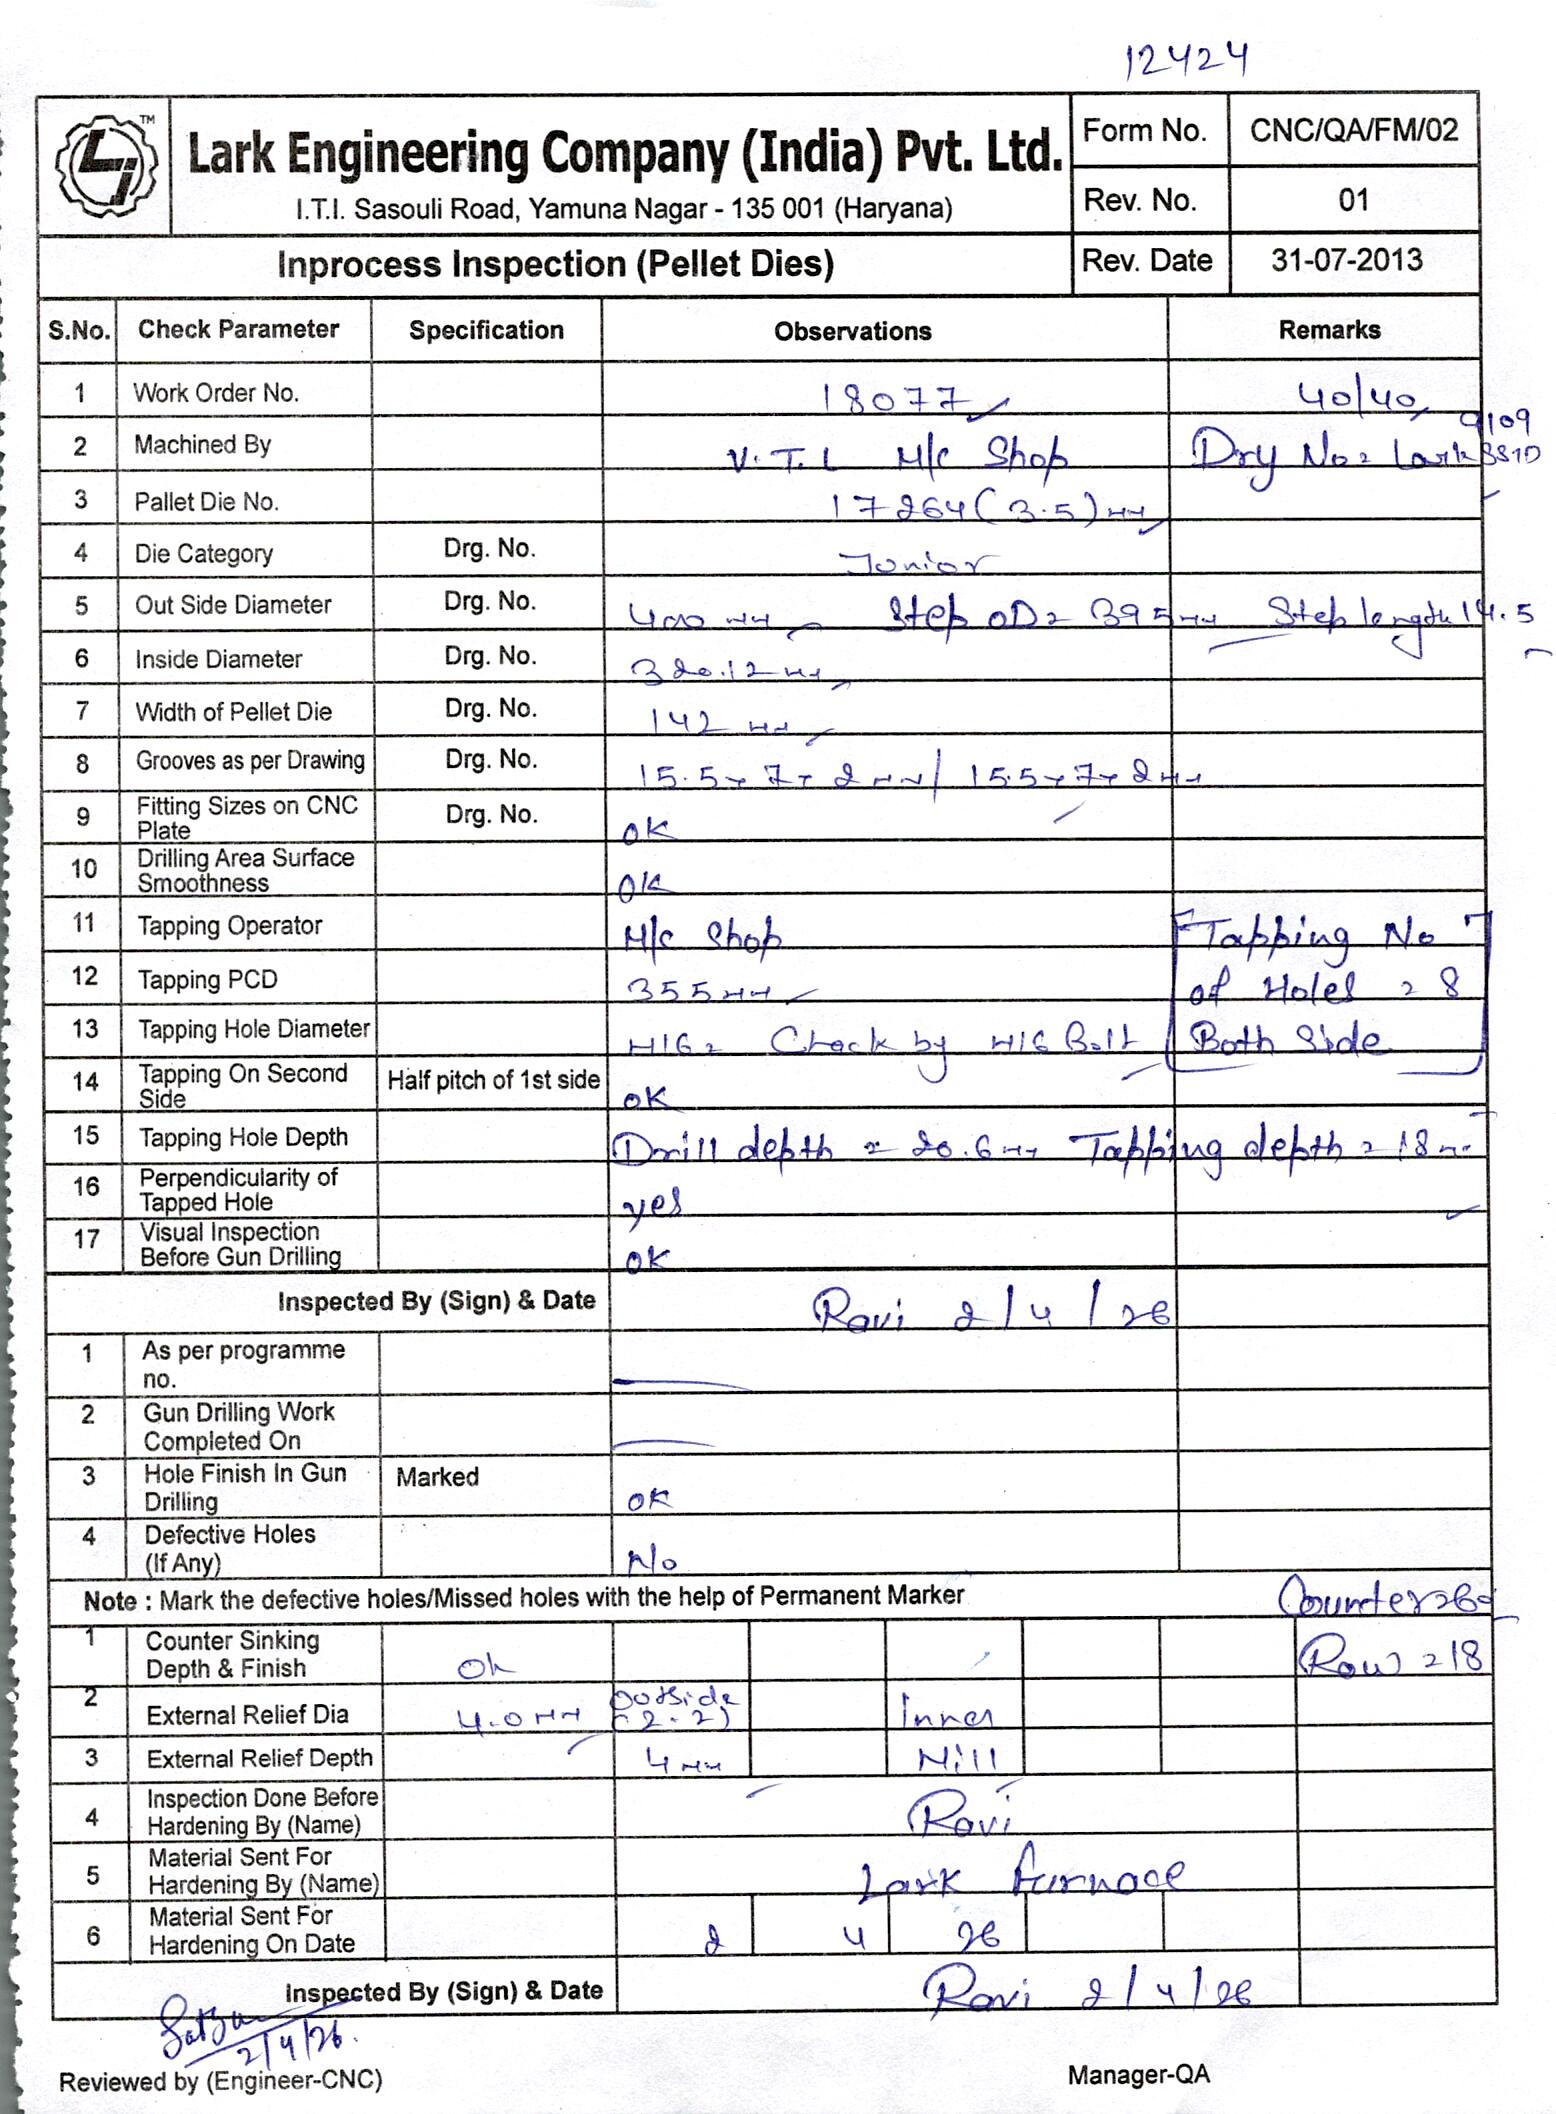 12424
TM
Lark Engineering Company (India) Pvt. Ltd.
I.T.I. Sasouli Road, Yamuna Nagar - 135 001 (Haryana)
Form No. CNC/QA/FM/02
Rev. No. 01
Inprocess Inspection (Pellet Dies)
Rev. Date 31-07-2013
S.No. Check Parameter Specification Observations Remarks
1 Work Order No. 18077 40/40
2 Machined By V.T.L M/c Shop Dry No= Lark
3 Pallet Die No. 17264(3.5)MM
4 Die Category Drg. No. Junior
5 Out Side Diameter Drg. No. 400 MM Step OD= 395MM Step length 14.5
6 Inside Diameter Drg. No. 320.12 MM
7 Width of Pellet Die Drg. No. 142 MM
8 Grooves as per Drawing Drg. No. 15.5x7x2MM/ 15.5x7x2MM
9 Fitting Sizes on CNC Plate Drg. No. OK
10 Drilling Area Surface Smoothness OK
11 Tapping Operator M/c Shop Tapping No
12 Tapping PCD 355MM of Holes = 8
13 Tapping Hole Diameter M16= Check by M16 Bolt Both Side
14 Tapping On Second Side Half pitch of 1st side OK
15 Tapping Hole Depth Drill depth = 20.6MM Tapping depth = 18MM
16 Perpendicularity of Tapped Hole yes
17 Visual Inspection Before Gun Drilling OK
Inspected By (Sign) & Date Ravi 2/4/26
1 As per programme no.
2 Gun Drilling Work Completed On
3 Hole Finish In Gun Drilling Marked OK
4 Defective Holes (If Any) No
Note : Mark the defective holes/Missed holes with the help of Permanent Marker
1 Counter Sinking Depth & Finish Ok Row = 18
2 External Relief Dia 4.0MM outside (2-2) Inner
3 External Relief Depth 4MM Nill
4 Inspection Done Before Hardening By (Name) Ravi
5 Material Sent For Hardening By (Name) Lark furnace
6 Material Sent For Hardening On Date 2 4 26
Inspected By (Sign) & Date Ravi 2/4/26
2/4/26.
Reviewed by (Engineer-CNC) Manager-QA